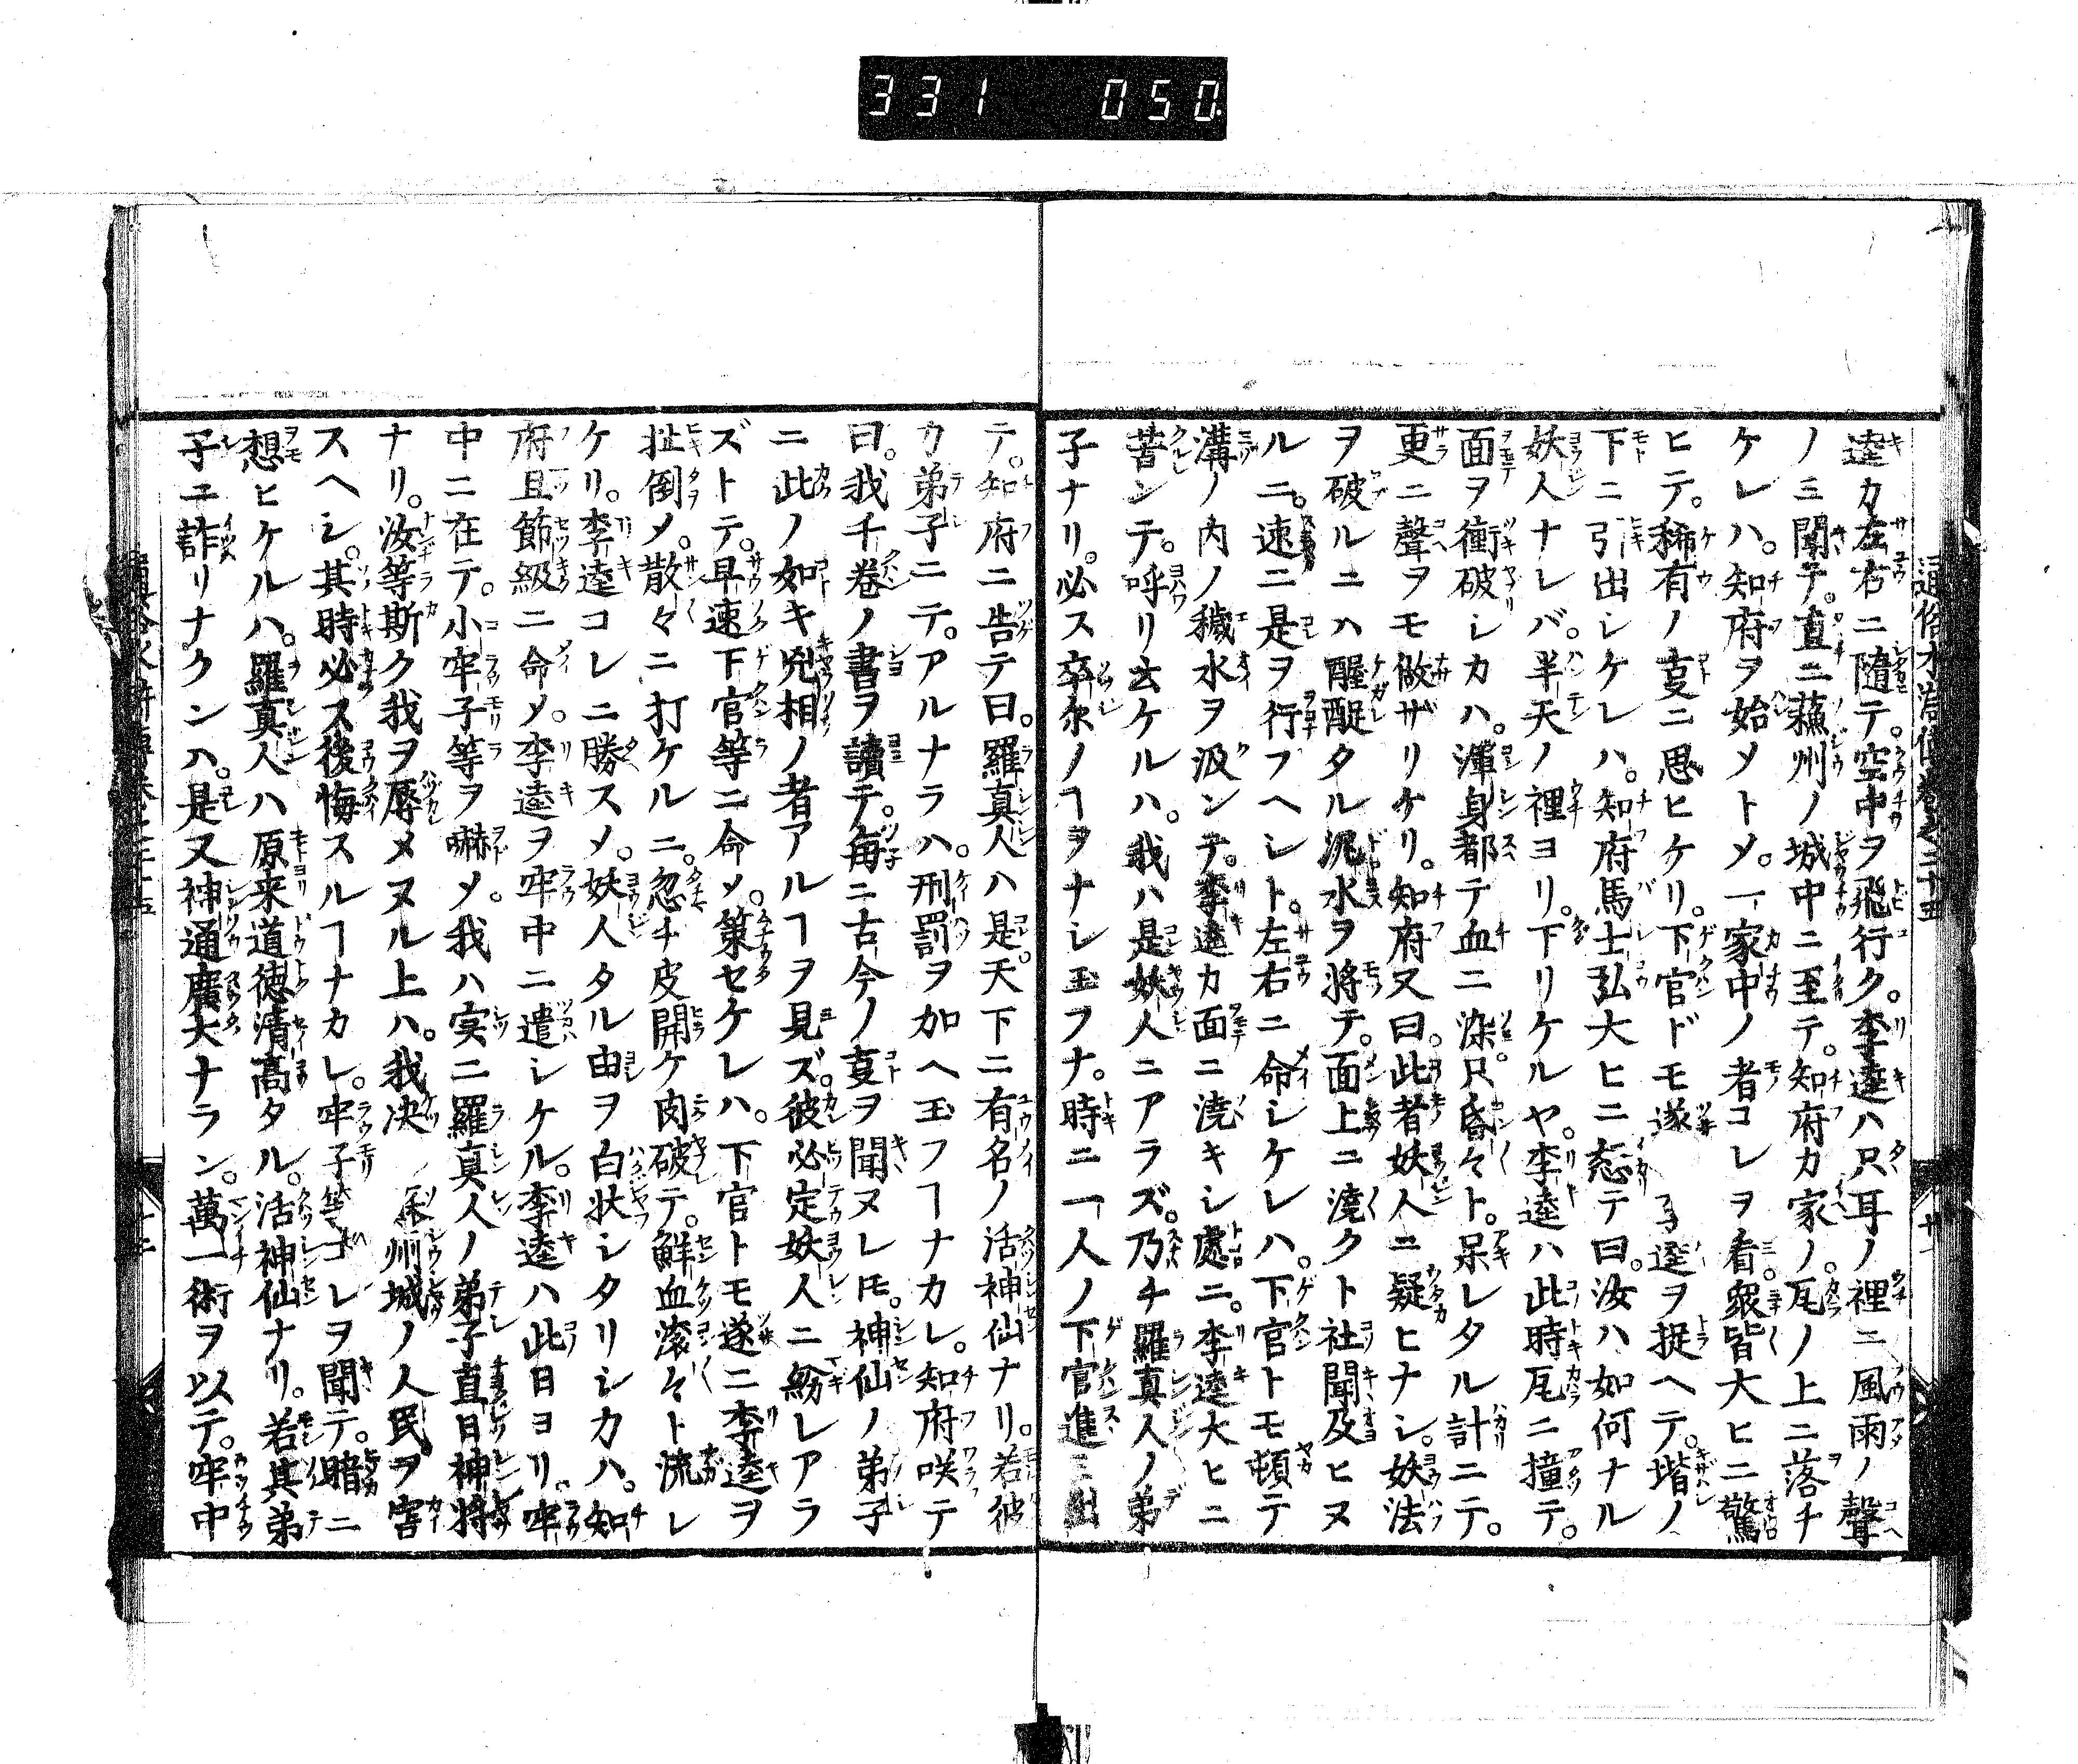 331 050
逵カ左右ニ隨テ。空中ヲ飛行ク。李逵ハ只耳ノ裡ニ風雨ノ聲
ノミ聞テ。直ニ蘓州ノ城中ニ至テ。知府カ家ノ。瓦ノ上ニ落チ
ケレハ。知府ヲ始メトメ。一家中ノ者コレヲ看。衆皆大ヒニ驚
ヒテ。稀有ノ㕝ニ思ヒケリ。下官ドモ遂 逵ヲ捉ヘテ。堦ノ
下ニ引出シケレハ。知府馬士弘大ヒニ怒テ曰。汝ハ如何ナル
妖人ナレバ。半天ノ裡ヨリ。下リケルヤ。李逵ハ此時瓦ニ撞テ。
面ヲ衝破シカハ。渾身都テ血ニ染。只昏々ト。呆レタル計ニテ。
更ニ聲ヲモ做ザリケリ。知府又曰。此者妖人ニ疑ヒナシ。妖法
ヲ破ルニハ腥醍タル泥水ヲ将テ。面上ニ澆クト社聞及ヒヌ
ルニ。速ニ是ヲ行フヘシト。左右ニ命シケレハ。下官トモ頓テ
溝ノ内ノ穢水ヲ汲ンテ。李逵カ面ニ澆キシ處ニ。李逵大ヒニ
苦ンテ。呼リ云ケルハ。我ハ是妖人ニアラズ。乃チ羅真人ノ弟
子ナリ。必ス卒尓ノヿヲナシ玉フナ。時ニ一人ノ下官進ミ出
テ。知府ニ告テ曰。羅真人ハ是。天下ニ有名ノ活神仙ナリ。若彼
カ弟子ニテ。アルナラハ。刑罰ヲ加ヘ玉フヿナカレ。知府咲テ
曰。我千巻ノ書ヲ讀テ。毎ニ古今ノ㕝ヲ聞ヌレ𪜈。神仙ノ弟子
ニ此ノ如キ兇相ノ者アルヿヲ見ズ。彼必定妖人ニ紛レアラ
ズトテ。早速下官等ニ命ソ。策セケレハ。下官トモ遂ニ李逵ヲ
扯倒メ。散々ニ打ケルニ。忽チ皮開ケ肉破テ。鮮血滚々ト流レ
ケリ。李逵コレニ勝スメ。妖人タル由ヲ白状シタリシカハ。知
府且節級ニ命メ。李逵ヲ牢中ニ遣シケル。李逵ハ此日ヨリ。牢
中ニ在テ。小牢子等ヲ嚇メ。我ハ实ニ羅真人ノ弟子直日神将
ナリ。汝等斯ク我ヲ辱メヌル上ハ。我决 州城ノ人民ヲ害
スヘシ。其時必ス後悔スルヿナカレ。牢子等コレヲ聞テ。暗ニ
想ヒケルハ。羅真人ハ原来道徳清高タル。活神仙ナリ。若其弟
子ニ詐リナクンハ。是又神通廣大ナラン。萬一術ヲ以テ。牢中